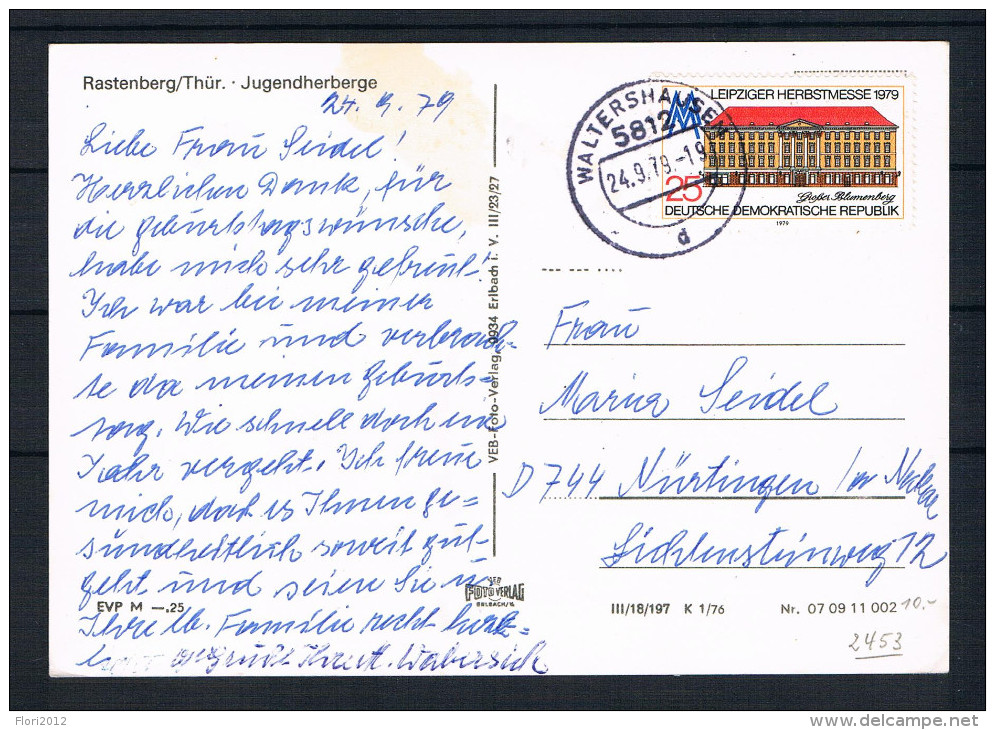 Rastenberg/Thür. · Jugendherberge
24.9.79
Liebe Frau Seidel!
Herzlichen Dank, für
die Geburtstagswünsche,
habe mich sehr gefreut!
Ich war bei meiner
Familie und verbrach-
te da meinen Geburts-
tag. Wie schnell doch ein
Jahr vergeht. Ich freue
mich, daß es Ihnen ge-
sundheitlich soweit gut
geht und seien Sie u.
Ihre lb. Familie recht herz-
lich gegrüßt
EVP M —.25
VEB-Foto-Verlag, 9934 Erlbach i. V. III/23/27
VEB
FOTO VERLAG
ERLBACH/V.
WALTERSHAUSEN
5812
24.9.79-19
d
LEIPZIGER HERBSTMESSE 1979
MM
25
Großer Blumenberg
DEUTSCHE DEMOKRATISCHE REPUBLIK
1979
Frau
Maria Seidel
D 744 Nürtingen
Lichtensteinweg 12
III/18/197 K 1/76
Nr. 07 09 11 002
10.-
2453
Flori2012
delcampe.net